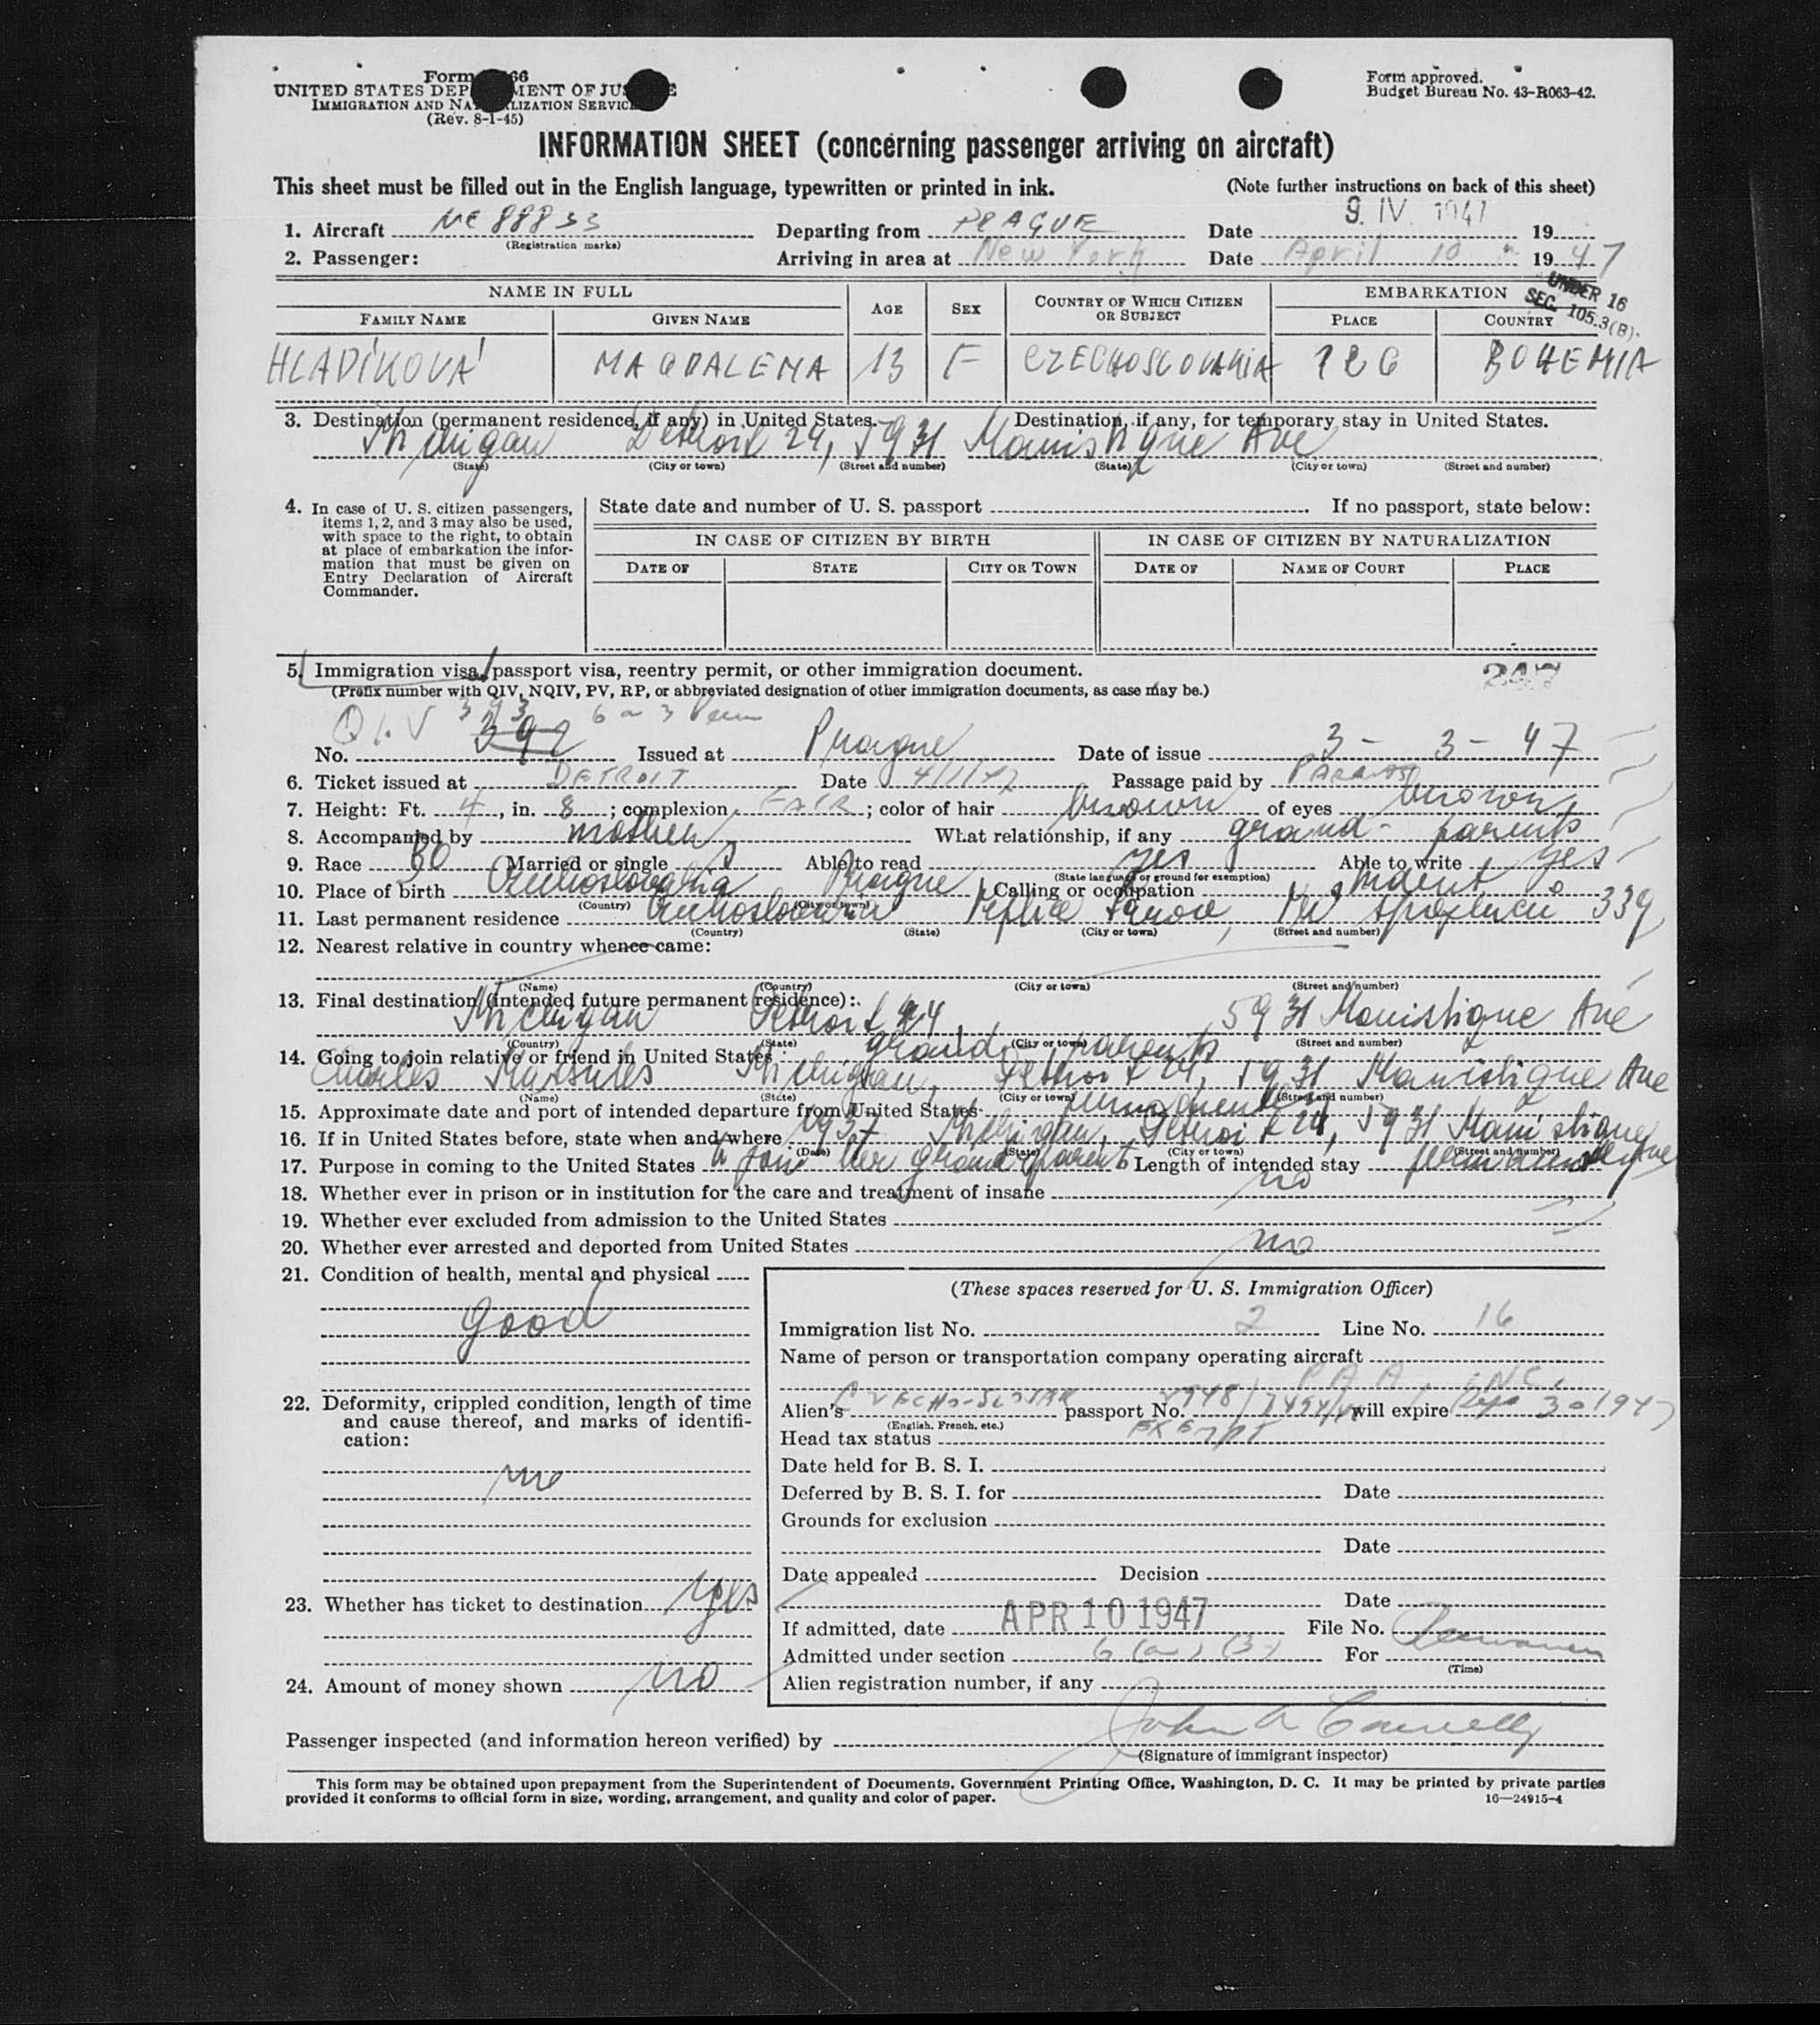 Form 66
UNITED STATES DEP MENT OF JUS E
IMMIGRATION AND NA LIZATION SERVIC
(Rev. 8-1-45)
Form approved.
Budget Bureau No. 43-R063-42.
INFORMATION SHEET (concerning passenger arriving on aircraft)
This sheet must be filled out in the English language, typewritten or printed in ink. (Note further instructions on back of this sheet)
1. Aircraft NC 88833 Departing from PRAGUE Date 9. IV. 1947 19
(Registration marks)
2. Passenger: Arriving in area at New York Date April 10 19 47
UNDER 16
SEC. 105.3(B).
NAME IN FULL AGE SEX COUNTRY OF WHICH CITIZEN OR SUBJECT EMBARKATION
FAMILY NAME GIVEN NAME PLACE COUNTRY
HLADÍKOVÁ MAGDALENA 13 F CZECHOSLOVAKIA PRG BOHEMIA
3. Destination (permanent residence, if any) in United States. Destination, if any, for temporary stay in United States.
Michigan Detroit 24, 5931 Manistique Ave
(State) (City or town) (Street and number) (State) (City or town) (Street and number)
4. In case of U. S. citizen passengers,
items 1, 2, and 3 may also be used,
with space to the right, to obtain
at place of embarkation the infor-
mation that must be given on
Entry Declaration of Aircraft
Commander.
State date and number of U. S. passport If no passport, state below:
IN CASE OF CITIZEN BY BIRTH IN CASE OF CITIZEN BY NATURALIZATION
DATE OF STATE CITY OR TOWN DATE OF NAME OF COURT PLACE
5. Immigration visa, passport visa, reentry permit, or other immigration document. 247
(Prefix number with QIV, NQIV, PV, RP, or abbreviated designation of other immigration documents, as case may be.)
QIV 393 6 a 3 Perm
No. 392 Issued at Prague Date of issue 3- 3- 47
6. Ticket issued at DETROIT Date 4/1/47 Passage paid by
7. Height: Ft. 4, in. 8; complexion FAIR; color of hair brown of eyes brown
8. Accompanied by mother What relationship, if any grand- parents
9. Race BO Married or single S Able to read yes Able to write yes
(State language or ground for exemption)
10. Place of birth Czechoslovakia Prague Calling or occupation student
(Country) (City or town)
11. Last permanent residence Czechoslovakia Teplice Šanov, 339
(Country) (State) (City or town) (Street and number)
12. Nearest relative in country whence came:
(Name) (Country) (City or town) (Street and number)
13. Final destination (intended future permanent residence):
Michigan Detroit 24, 5931 Manistique Ave
(Country) (State) (City or town) (Street and number)
14. Going to join relative or friend in United States: grand parents
Charles Michigan, Detroit 24, 5931 Manistique Ave
(Name) (State) (City or town) (Street and number)
15. Approximate date and port of intended departure from United States permanently
16. If in United States before, state when and where 1937 Michigan, Detroit 24, 5931 Manistique Ave
(Date) (State) (City or town) (Street and number)
17. Purpose in coming to the United States to join her grand parents Length of intended stay permanently
18. Whether ever in prison or in institution for the care and treatment of insane no
19. Whether ever excluded from admission to the United States
20. Whether ever arrested and deported from United States no
21. Condition of health, mental and physical
good
22. Deformity, crippled condition, length of time
and cause thereof, and marks of identifi-
cation:
no
23. Whether has ticket to destination yes
24. Amount of money shown no
(These spaces reserved for U. S. Immigration Officer)
Immigration list No. 2 Line No. 16
Name of person or transportation company operating aircraft
P A A, INC.
Alien's CZECHO-SLOVAK passport No. will expire Sept 30 1947
(English, French, etc.)
Head tax status EXEMPT
Date held for B. S. I.
Deferred by B. S. I. for Date
Grounds for exclusion
Date
Date appealed Decision
Date
If admitted, date APR 10 1947 File No.
Admitted under section 6 (a) (3) For
(Time)
Alien registration number, if any
Passenger inspected (and information hereon verified) by John A Connelly
(Signature of immigrant inspector)
This form may be obtained upon prepayment from the Superintendent of Documents, Government Printing Office, Washington, D. C. It may be printed by private parties
provided it conforms to official form in size, wording, arrangement, and quality and color of paper. 16—24915-4